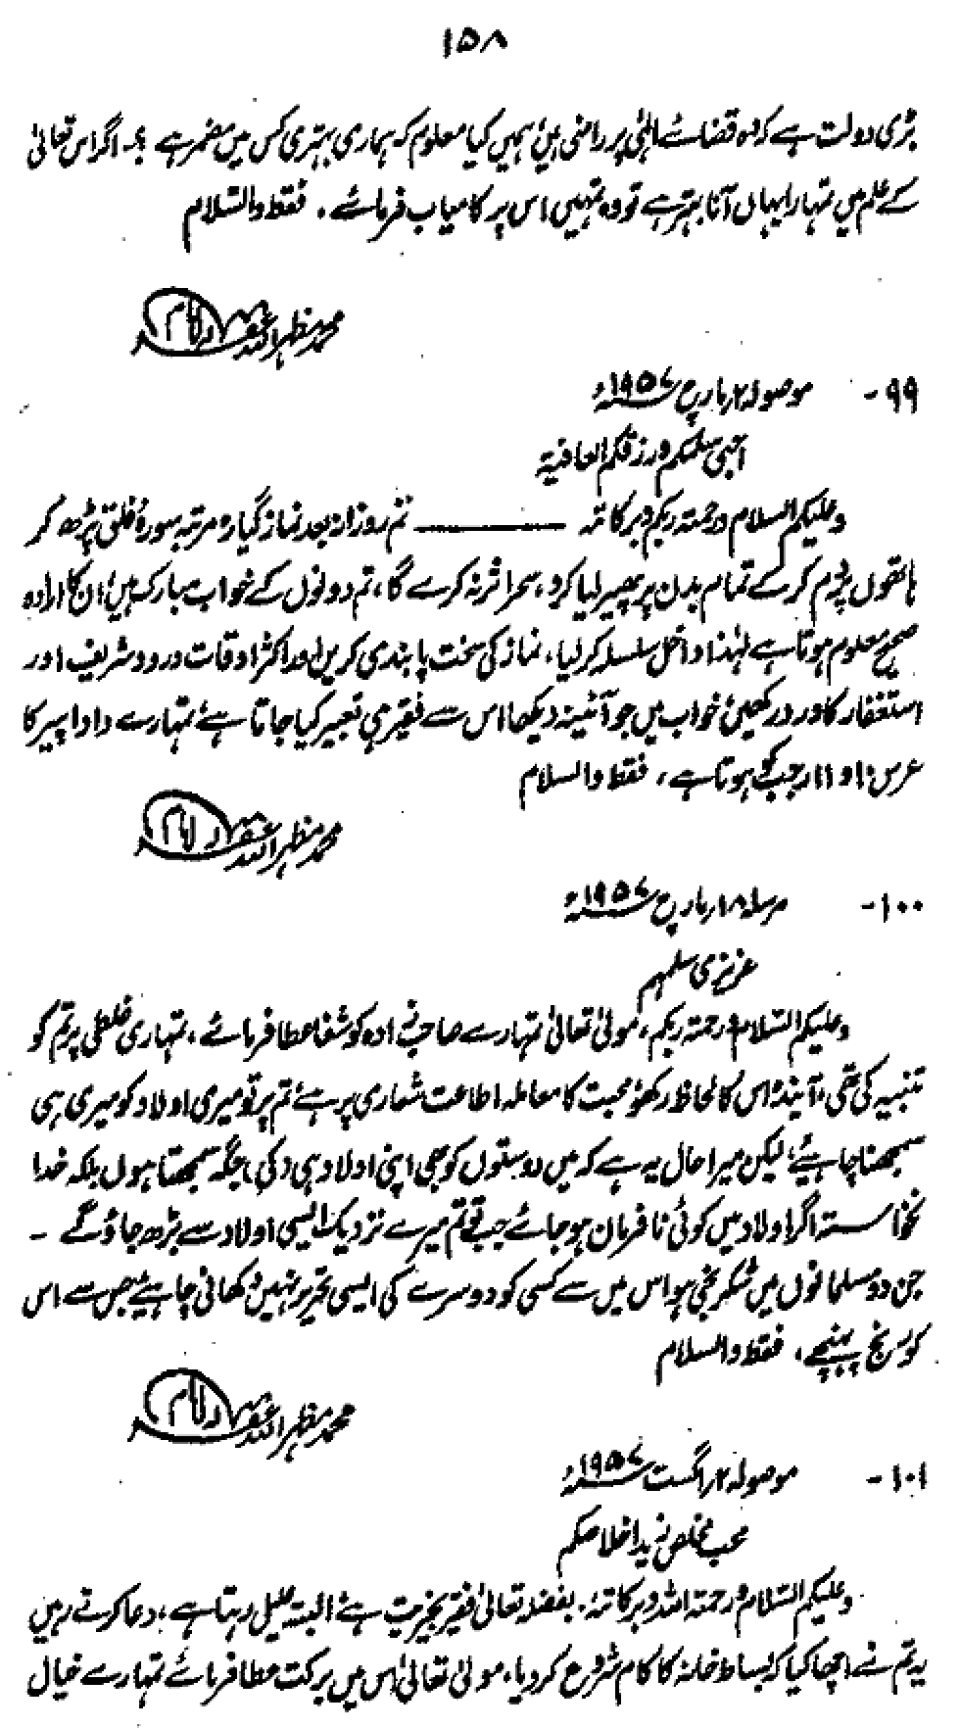 ۱۵۸
بڑی دولت ہے کہ وہ قضائے الٰہی پر راضی ہیں، ہمیں کیا معلوم کہ ہماری بہتری کس میں مضمر ہے ؟۔ اگر اس تعالیٰ
کے علم میں تمہارا یہاں آنا بہتر ہے تو وہ تمہیں اس پر کامیاب فرمائے ، فقط والسّلام
محمد مظہر اللہ غفرلہ امام
۹۹- موصولہ ۲ مارچ ۱۹۵۷ء
احبی سلمکم ورزقکم العافیة
وعلیکم السلام ورحمتہ ربکم وبرکاتہ ——— تم روزانہ بعد نماز گیارہ مرتبہ سورۂ فلق پڑھ کر
ہاتھوں پر دم کر کے تمام بدن پر پھیر لیا کرو، سحر اثر نہ کرے گا، تم دونوں کے خواب مبارک ہیں، ان کا ارادہ
صحیح معلوم ہوتا ہے لہٰذا داخل سلسلہ کر لیا، نماز کی سخت پابندی کریں اور اکثر اوقات درود شریف اور
استغفار کا ورد رکھیں، خواب میں جو آئینہ دیکھا اس سے فقیر ہی تعبیر کیا جاتا ہے، تمہارے دادا پیر کا
عرس ۱۰ و ۱۱ رجب کو ہوتا ہے ، فقط والسلام
محمد مظہر اللہ غفرلہ امام
۱۰۰- مرسلہ ۱۸ مارچ ۱۹۵۷ء
عزیزی سلمہم
وعلیکم السّلام ورحمتہ ربکم، مولیٰ تعالیٰ تمہارے صاحبزادہ کو شفا عطا فرمائے ، تمہاری غلطی پر تم کو
تنبیہ کی تھی، آیندہ اس کا لحاظ رکھو، محبت کا معاملہ اطاعت شعاری پر ہے، تم پر تو میری اولاد کو میری ہی
سمجھنا چاہیئے، لیکن میرا حال یہ ہے کہ میں دوستوں کو بھی اپنی اولاد ہی (کی) جگہ سمجھتا ہوں بلکہ خدا
نخواستہ اگر اولاد میں کوئی نافرمان ہو جائے جب تو تم میرے نزدیک ایسی اولاد سے بڑھ جاؤ گے ۔
جن دو مسلمانوں میں شکر رنجی ہو اس میں سے کسی کو دوسرے کی ایسی تحریر نہیں دکھانی چاہیئے جس سے اس
کو رنج پہنچے ، فقط والسلام
محمد مظہر اللہ غفرلہ امام
۱۰۱- موصولہ ۲ اگست ۱۹۵۷ء
محب مخلص زید اخلاصکم
وعلیکم السّلام ورحمتہ اللہ وبرکاتہٗ۔ بفضلہ تعالیٰ فقیر بخیریت ہے، البتہ علیل رہتا ہے ، دعا کرتے رہیں
یہ تم نے اچھا کیا کہ بساط خانہ کا کام شروع کر دیا، مولیٰ تعالیٰ اس میں برکت عطا فرمائے تمہارے خیال